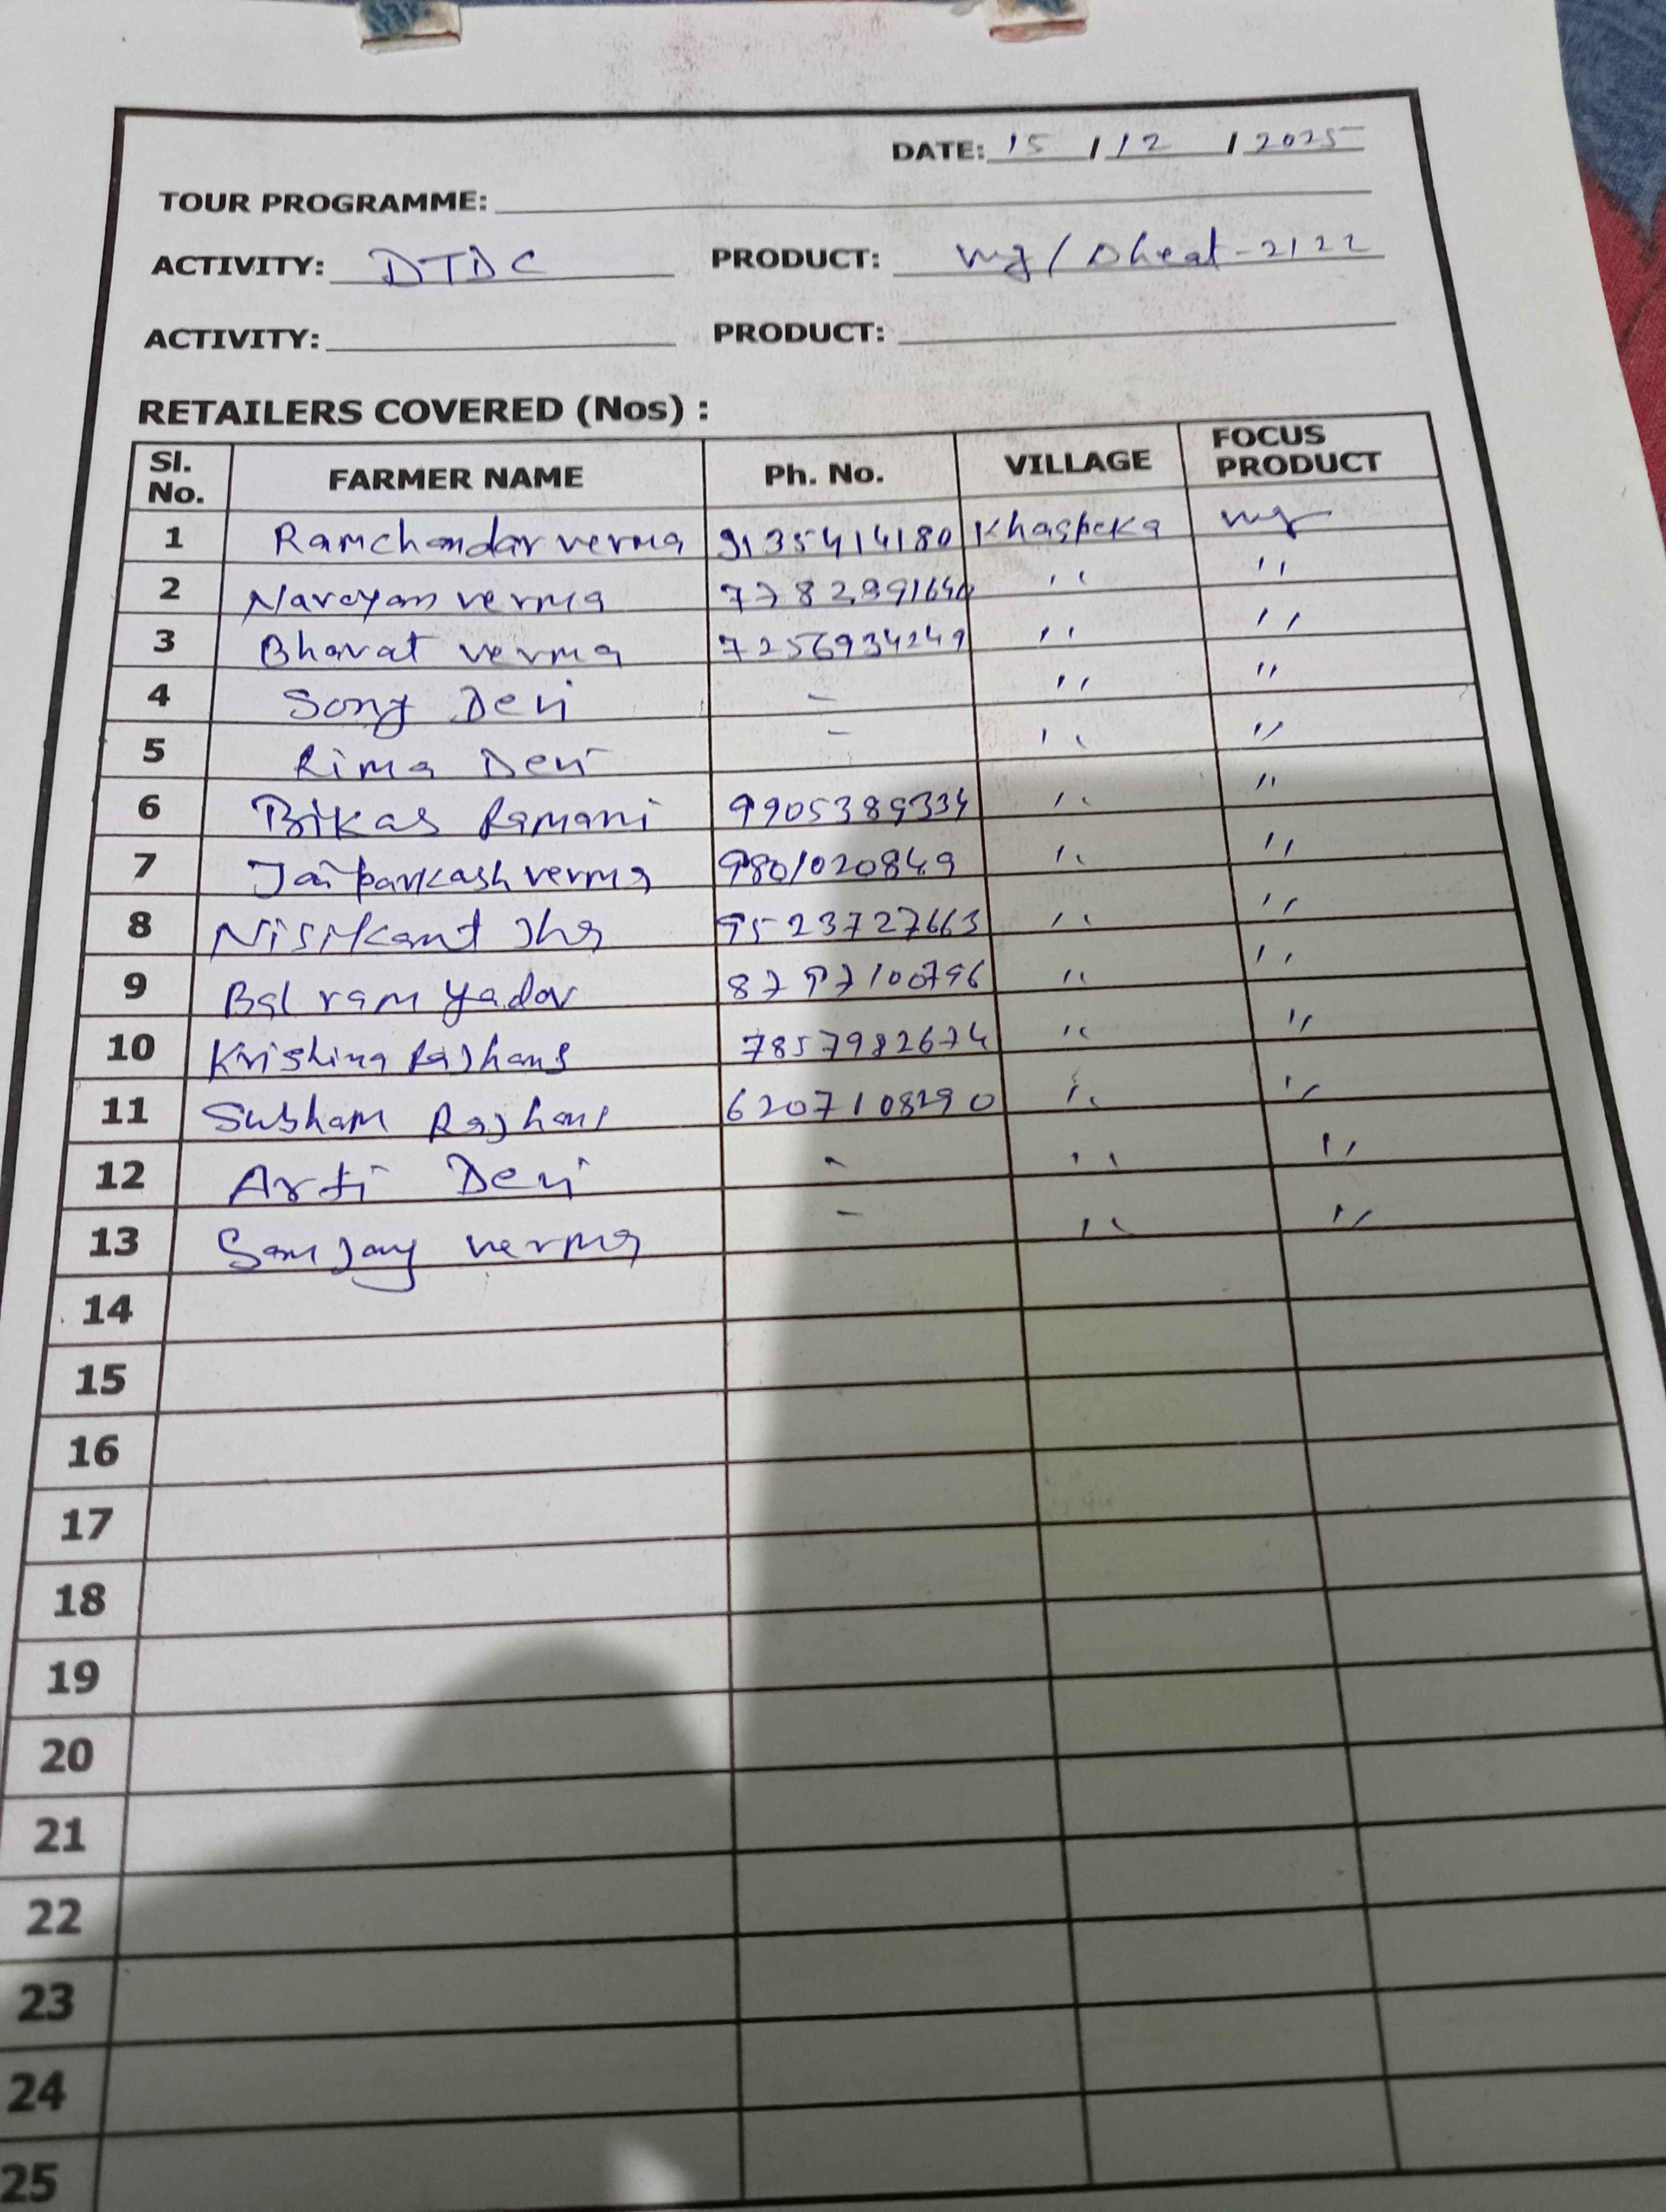 DATE: 15 / 12 / 2025
TOUR PROGRAMME:
ACTIVITY: DTDC PRODUCT: Wg / Dheat-2122
ACTIVITY: PRODUCT:
RETAILERS COVERED (Nos) :
Sl. No. FARMER NAME Ph. No. VILLAGE FOCUS PRODUCT
1 Ramchandar verma 9135414180 Khaspeka Wg
2 Narayan verma 7782991640 " "
3 Bharat verma 7256934249 " "
4 Devi - " "
5 Rima Devi - " "
6 Bikas Ramani 9905389334 " "
7 Jaiparkash verma 9801020849 " "
8 Nisikant Jha 9523727663 " "
9 Balram Yadav 8797100796 " "
10 Krishina Rajhans 7857982674 " "
11 Subham Rajhans 6207108290 " "
12 Arti Devi - " "
13 Sanjay verma - " "
14
15
16
17
18
19
20
21
22
23
24
25